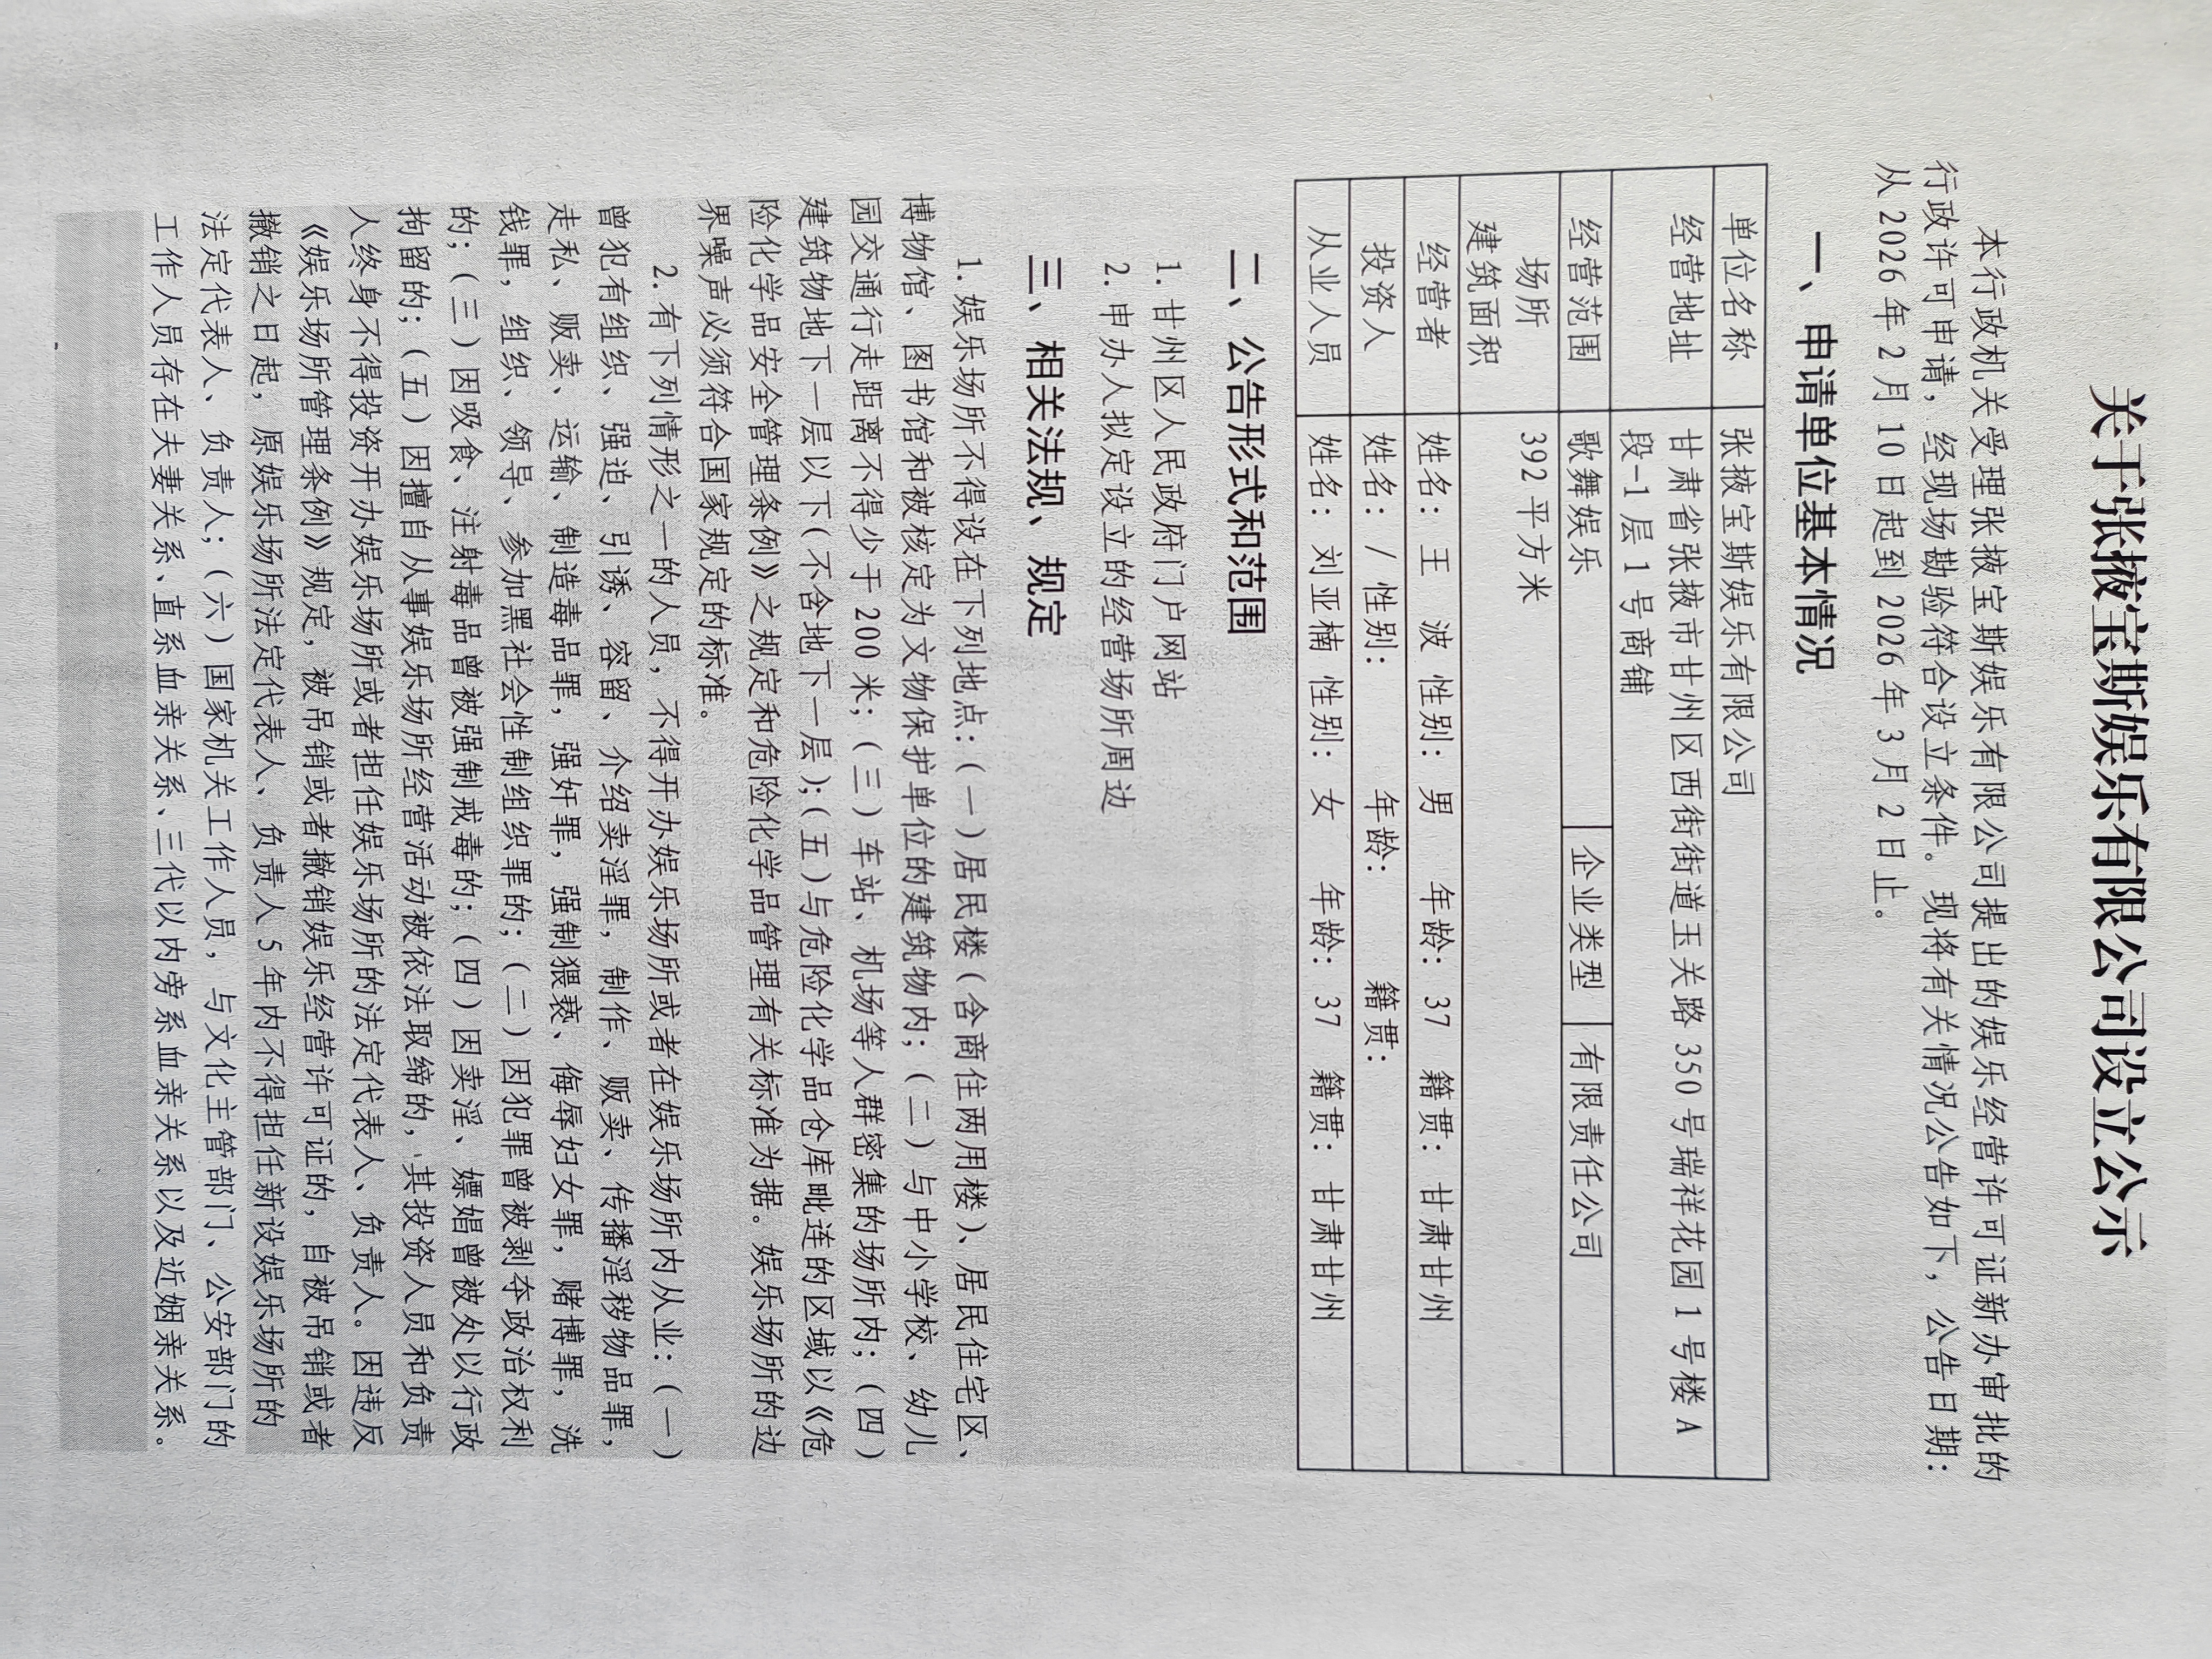 关于张掖宝斯娱乐有限公司设立公示
本行政机关受理张掖宝斯娱乐有限公司提出的娱乐经营许可证新办审批的
行政许可申请，经现场勘验符合设立条件。现将有关情况公告如下，公告日期：
从 2026 年 2 月 10 日起到 2026 年 3 月 2 日止。
一、申请单位基本情况
单位名称 张掖宝斯娱乐有限公司
经营地址 甘肃省张掖市甘州区西街街道玉关路 350 号瑞祥花园 1 号楼 A
段-1 层 1 号商铺
经营范围 歌舞娱乐 企业类型 有限责任公司
场所
建筑面积 392 平方米
经营者 姓名：王 波 性别：男 年龄：37 籍贯：甘肃甘州
投资人 姓名：/ 性别： 年龄： 籍贯：
从业人员 姓名：刘亚楠 性别：女 年龄：37 籍贯：甘肃甘州
二、公告形式和范围
1. 甘州区人民政府门户网站
2. 申办人拟定设立的经营场所周边
三、相关法规、规定
1. 娱乐场所不得设在下列地点：（一）居民楼（含商住两用楼）、居民住宅区、
博物馆、图书馆和被核定为文物保护单位的建筑物内；（二）与中小学校、幼儿
园交通行走距离不得少于 200 米；（三）车站、机场等人群密集的场所内；（四）
建筑物地下一层以下（不含地下一层）；（五）与危险化学品仓库毗连的区域以《危
险化学品安全管理条例》之规定和危险化学品管理有关标准为据。娱乐场所的边
界噪声必须符合国家规定的标准。
2. 有下列情形之一的人员，不得开办娱乐场所或者在娱乐场所内从业：（一）
曾犯有组织、强迫、引诱、容留、介绍卖淫罪，制作、贩卖、传播淫秽物品罪，
走私、贩卖、运输、制造毒品罪，强奸罪，强制猥亵、侮辱妇女罪，赌博罪，洗
钱罪，组织、领导、参加黑社会性制组织罪的；（二）因犯罪曾被剥夺政治权利
的；（三）因吸食、注射毒品曾被强制戒毒的；（四）因卖淫、嫖娼曾被处以行政
拘留的；（五）因擅自从事娱乐场所经营活动被依法取缔的，其投资人员和负责
人终身不得投资开办娱乐场所或者担任娱乐场所的法定代表人、负责人。因违反
《娱乐场所管理条例》规定，被吊销或者撤销娱乐经营许可证的，自被吊销或者
撤销之日起，原娱乐场所法定代表人、负责人 5 年内不得担任新设娱乐场所的
法定代表人、负责人；（六）国家机关工作人员，与文化主管部门、公安部门的
工作人员存在夫妻关系、直系血亲关系、三代以内旁系血亲关系以及近姻亲关系。